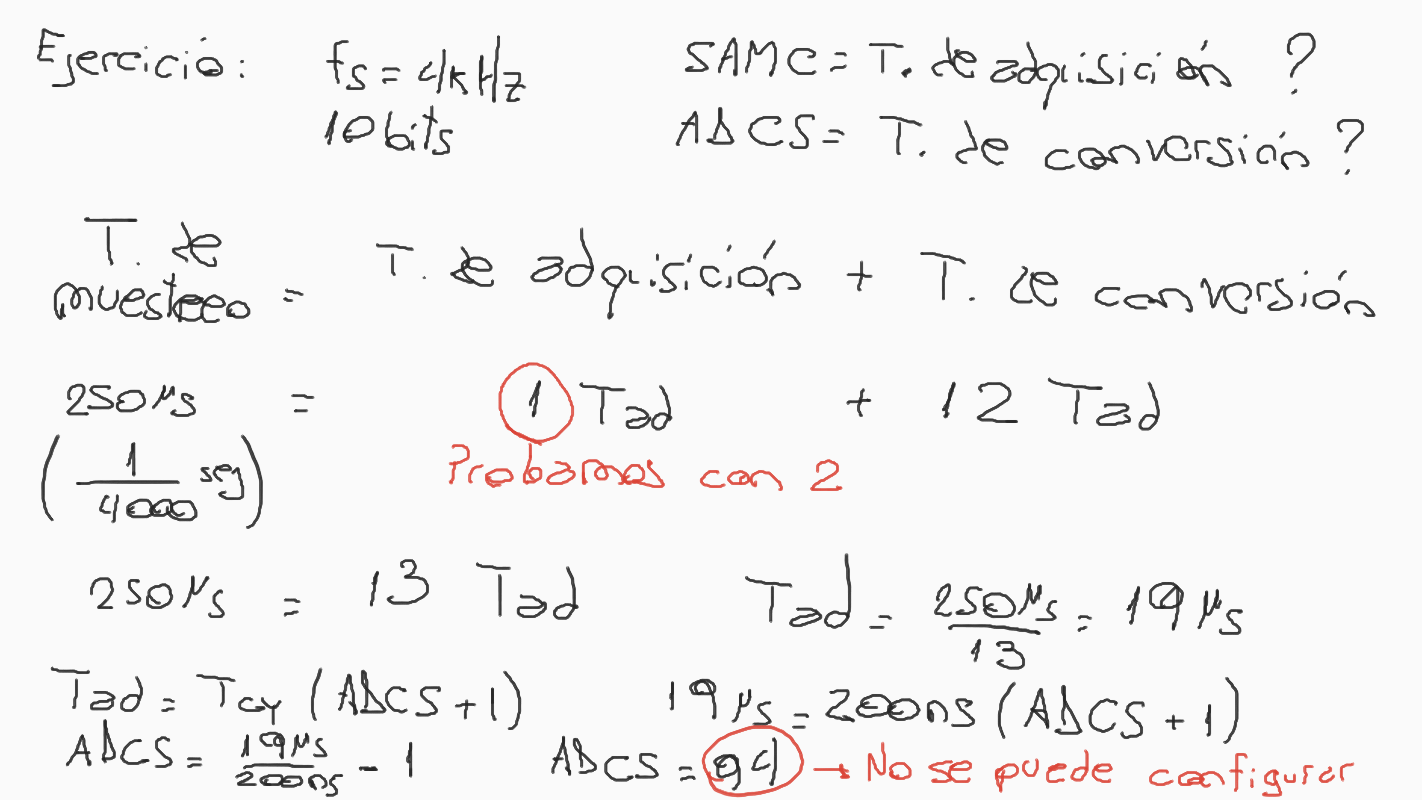 Ejercicio: fs = 4kHz SAMC = T. de adquisición ?
10 bits ADCS = T. de conversión ?
T. de muestreo = T. de adquisición + T. de conversión
250 μs = 1 Tad + 12 Tad
(1/4000 seg) Probamos con 2
250 μs = 13 Tad Tad = 250μs/13 = 19 μs
Tad = Tcy (ADCS + 1) 19 μs = 200ns (ADCS + 1)
ADCS = 19μs/200ns - 1 ADCS = 94 → No se puede configurar